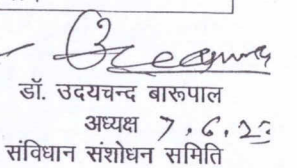 डॉ. उदयचन्द बारूपाल
अध्यक्ष 7.6.2
संविधान संशोधन समिति